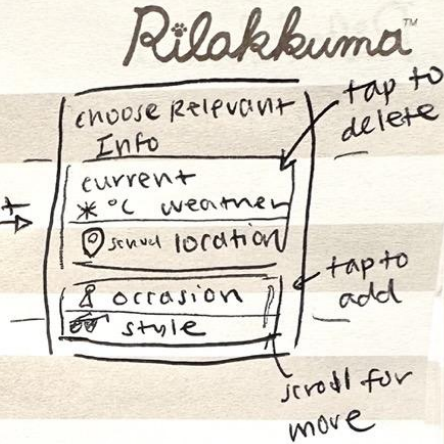 Rilakkuma™
choose Relevant
Info
tap to
delete
current
°C weather
location
tap to
add
occasion
style
scroll for
more